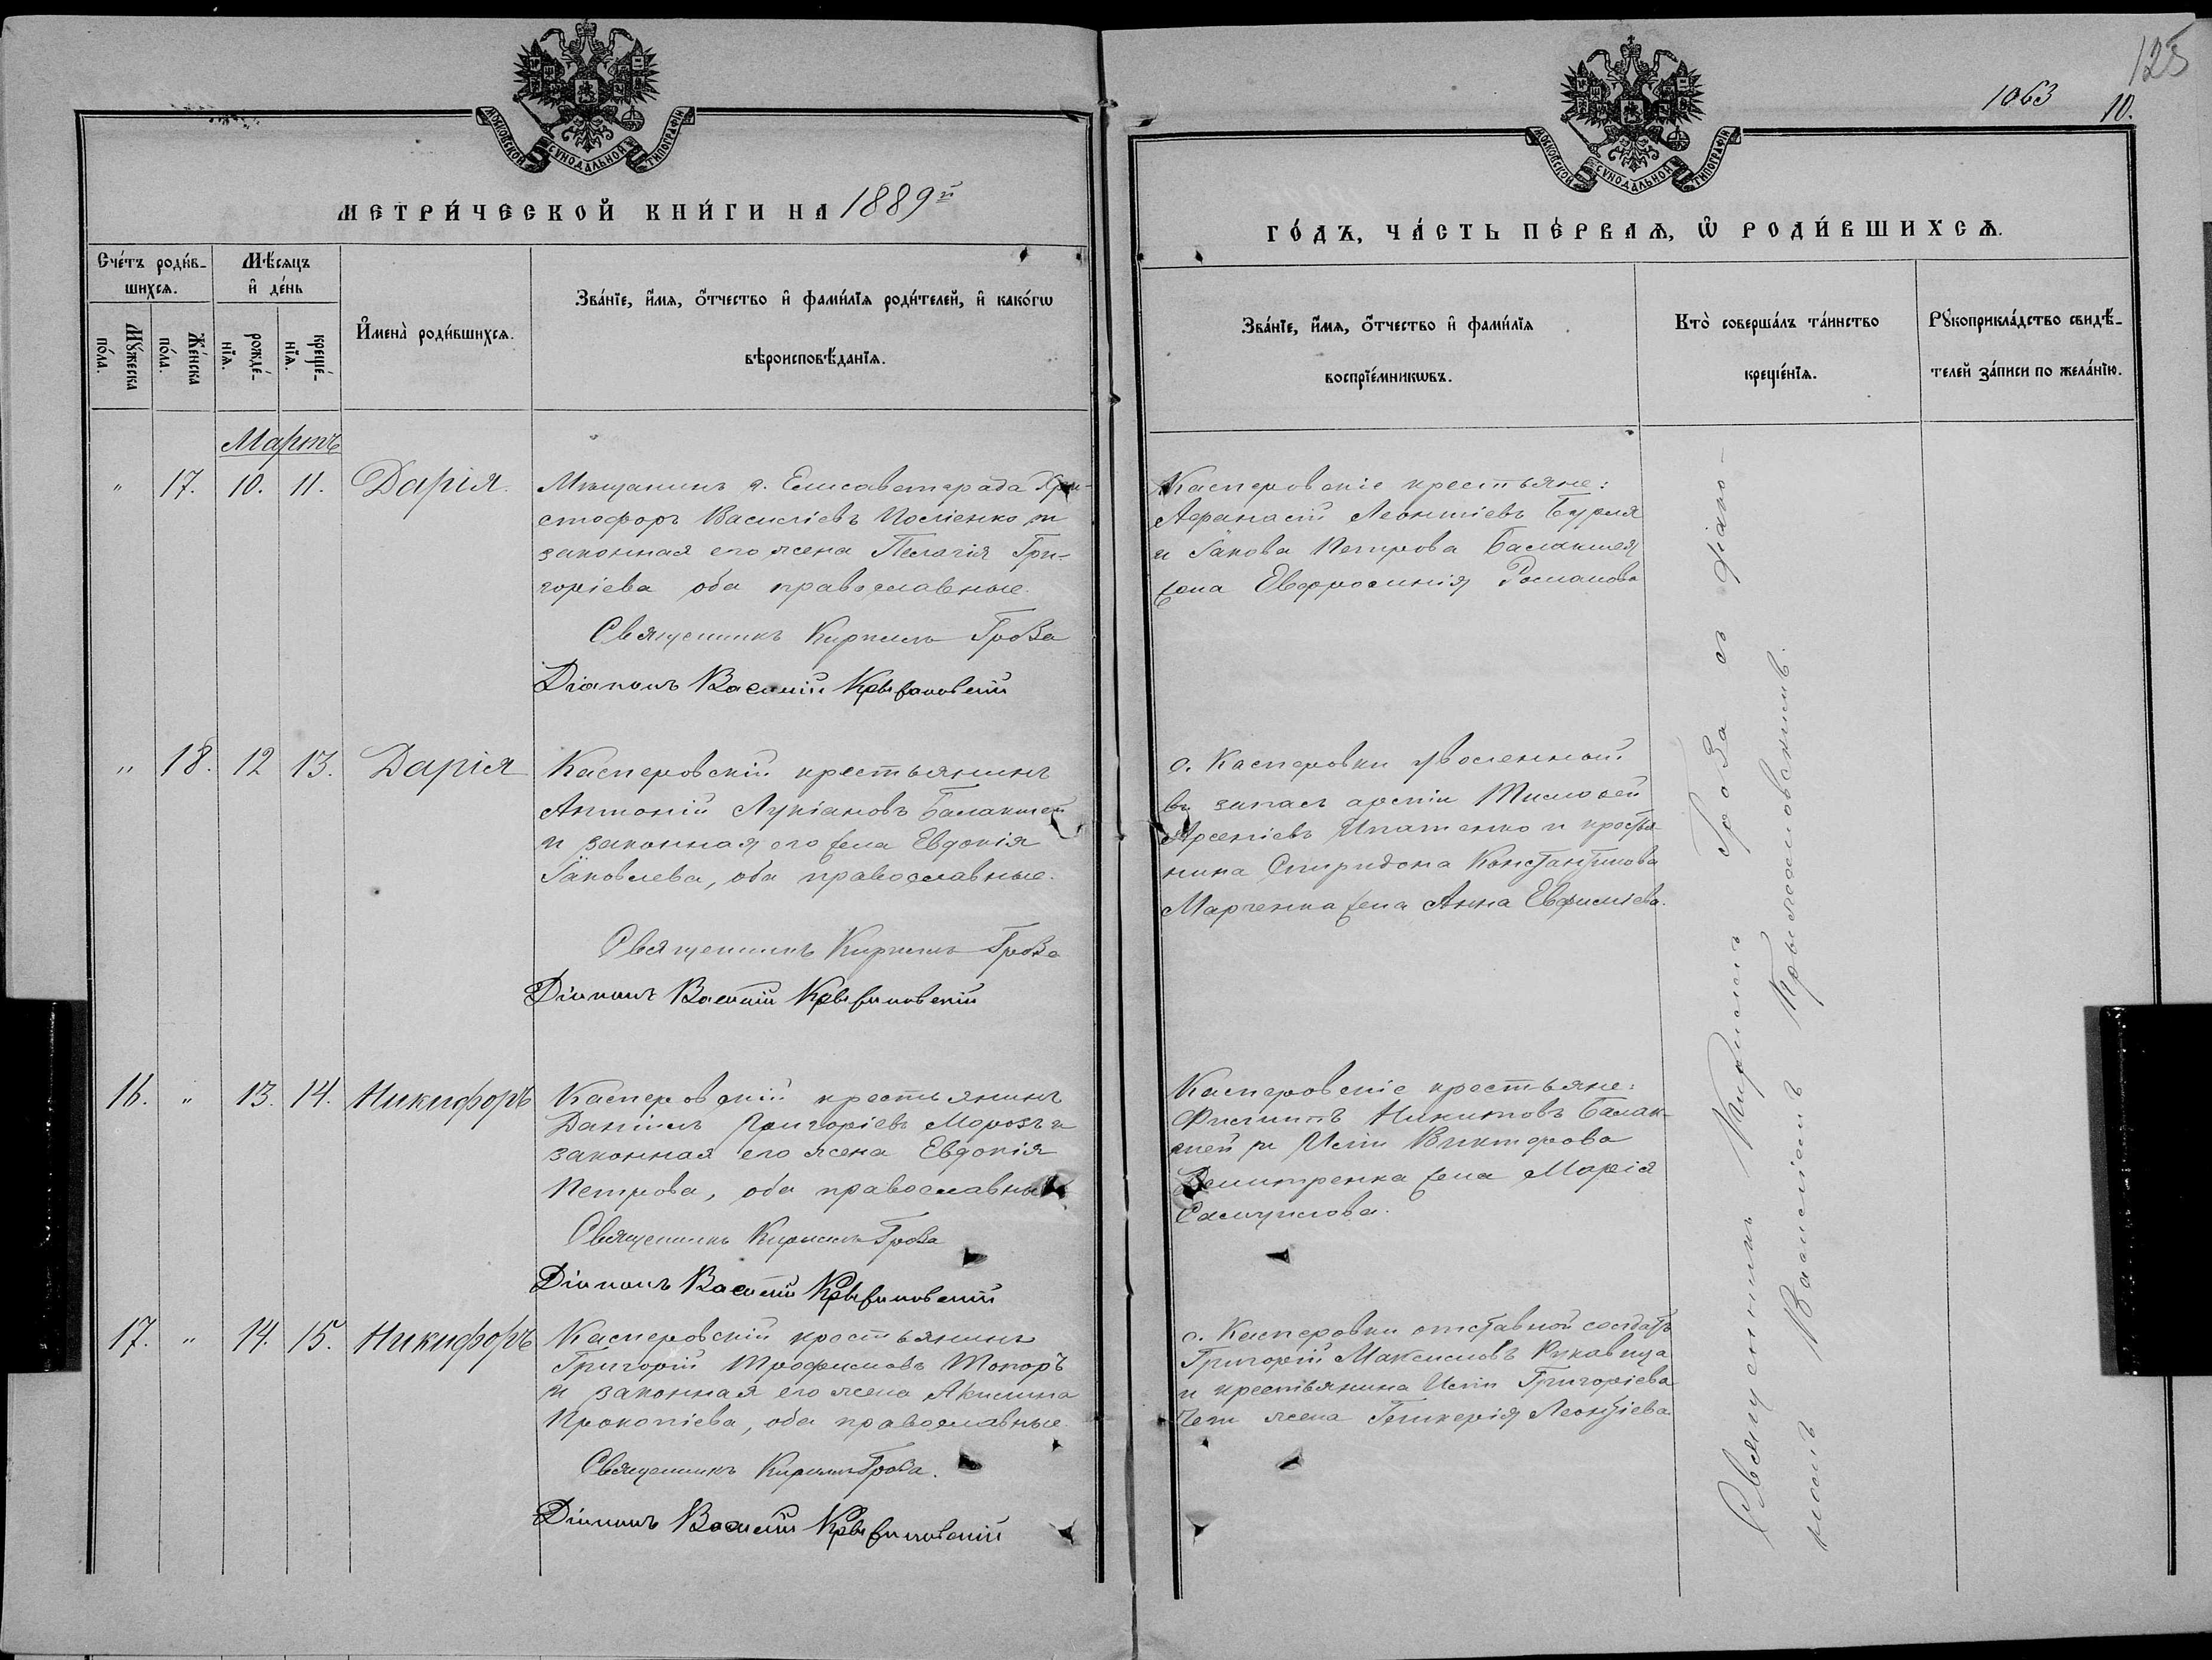 125
1063
10.
МОСКОВСКОЙ СѴНОДАЛЬНОЙ ТИПОГРАФІИ
МОСКОВСКОЙ СѴНОДАЛЬНОЙ ТИПОГРАФІИ
МЕТРИ́ЧЕСКОЙ КНИ́ГИ НА 1889й
ГО́ДЪ, ЧА́СТЬ ПЕ́РВАѦ, Ѡ РОДИ́ВШИХСѦ.
Сче́тъ роди́в-
шихсѧ.
Мѣ́сѧцъ
и де́нь
Мꙋ́жеска
по́ла.
Же́нска
по́ла.
рожде́-
нїѧ.
креще́-
нїѧ.
И҆мена̀ роди́вшихсѧ.
Зва́нїе, и҆́мѧ, ѻ҆́тчество и҆ фами́лїѧ роди́телей, и҆ како́гѡ
вѣроисповѣ́данїѧ.
Зва́нїе, и҆́мѧ, ѻ҆́тчество и҆ фами́лїѧ
воспрїе́мникѡвъ.
Кто̀ соверша́лъ та́инство
креще́нїѧ.
Рꙋкоприкла́дство свидѣ́-
телей за́писи по жела́нїю.
Мартъ
" 17. 10. 11. Дарія.
Мѣщанинъ г. Елисаветграда Хри-
стофоръ Василіевъ и
законная его жена Пелагія Гри-
горіева оба православные.
Священникъ Кириллъ Гроза
Діаконъ Василій Крыжановскій
Касперовскіе крестьяне:
Афанасій Леонтіевъ Бурля
и Іакова Петрова Балакшея
жена Евфросинія Романова
" 18. 12 13. Дарія
Касперовскій крестьянинъ
Антоній Лукіановъ Балакшей
и законная его жена Евдокія
Іаковлева, оба православные.
Священникъ Кириллъ Гроза
Діаконъ Василій Крыжановскій
с. Касперовки уволенный
въ запасъ арміи Тимофей
Арсеніевъ Игнатенко и крестья-
нина Спиридона Константинова
Марченка жена Анна Евфиміева.
16. " 13. 14. Никифоръ
Касперовскій крестьянинъ
Даніилъ Григоріевъ Морозъ и
законная его жена Евдокія
Петрова, оба православные
Священникъ Кириллъ Гроза
Діаконъ Василій Крыжановскій
Касперовскіе крестьяне:
Филиппъ Никитовъ Балак-
шей и Иліи Викторова
Димитренка жена Марія
Самуилова.
17. " 14. 15. Никифоръ
Касперовскій крестьянинъ
Григорій Трофимовъ Топоръ
и законная его жена Акилина
Прокопіева, оба православные.
Священникъ Кириллъ Гроза.
Діаконъ Василій Крыжановскій
с. Касперовки отставной солдатъ
Григорій Максимовъ Рукавица
и крестьянина Иліи Григоріева
жена Гликерія Леонтіева.
Священникъ Кириллъ Гроза съ діако-
номъ Василіемъ Крыжановскимъ.